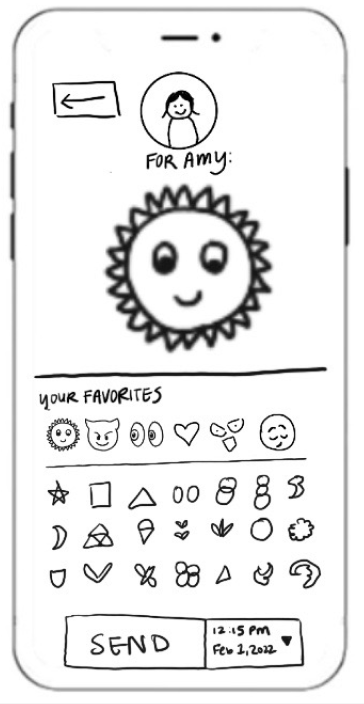 FOR AMY:
YOUR FAVORITES
SEND
12:15 PM
Feb 1, 2022